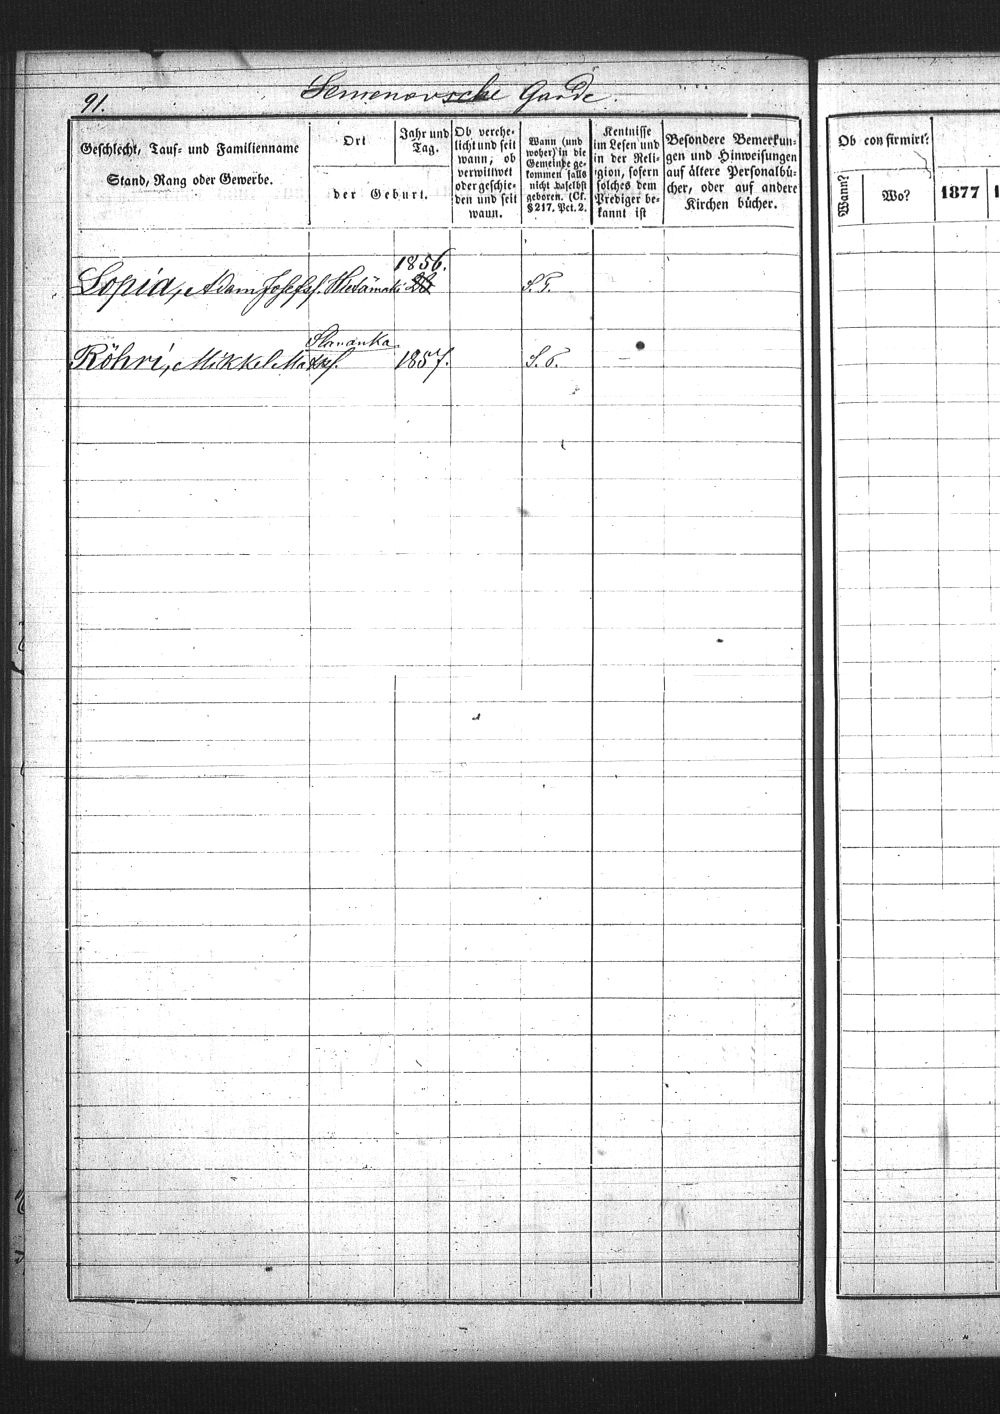 91.
Semenovsche Garde.
Geschlecht, Tauf- und Familienname
Stand, Rang oder Gewerbe.
Ort
Jahr und
Tag.
der Geburt.
Ob verehe-
licht und seit
wann; ob
verwittwet
oder geschie-
den und seit
wann.
Wann (und
woher) in die
Gemeinde ge-
kommen falls
nicht daselbst
geboren. (Cf.
§ 217. Pct. 2.
Kentnisse
im Lesen und
in der Reli-
gion, sofern
solches dem
Prediger be-
kannt ist
Besondere Bemerkun-
gen und Hinweisungen
auf ältere Personalbü-
cher, oder auf andere
Kirchen bücher.
Ob confirmirt?
Wann?
Wo?
1877
1856.
Lopia, Adam Josefs. 
Röhri, Mikkel 1857.